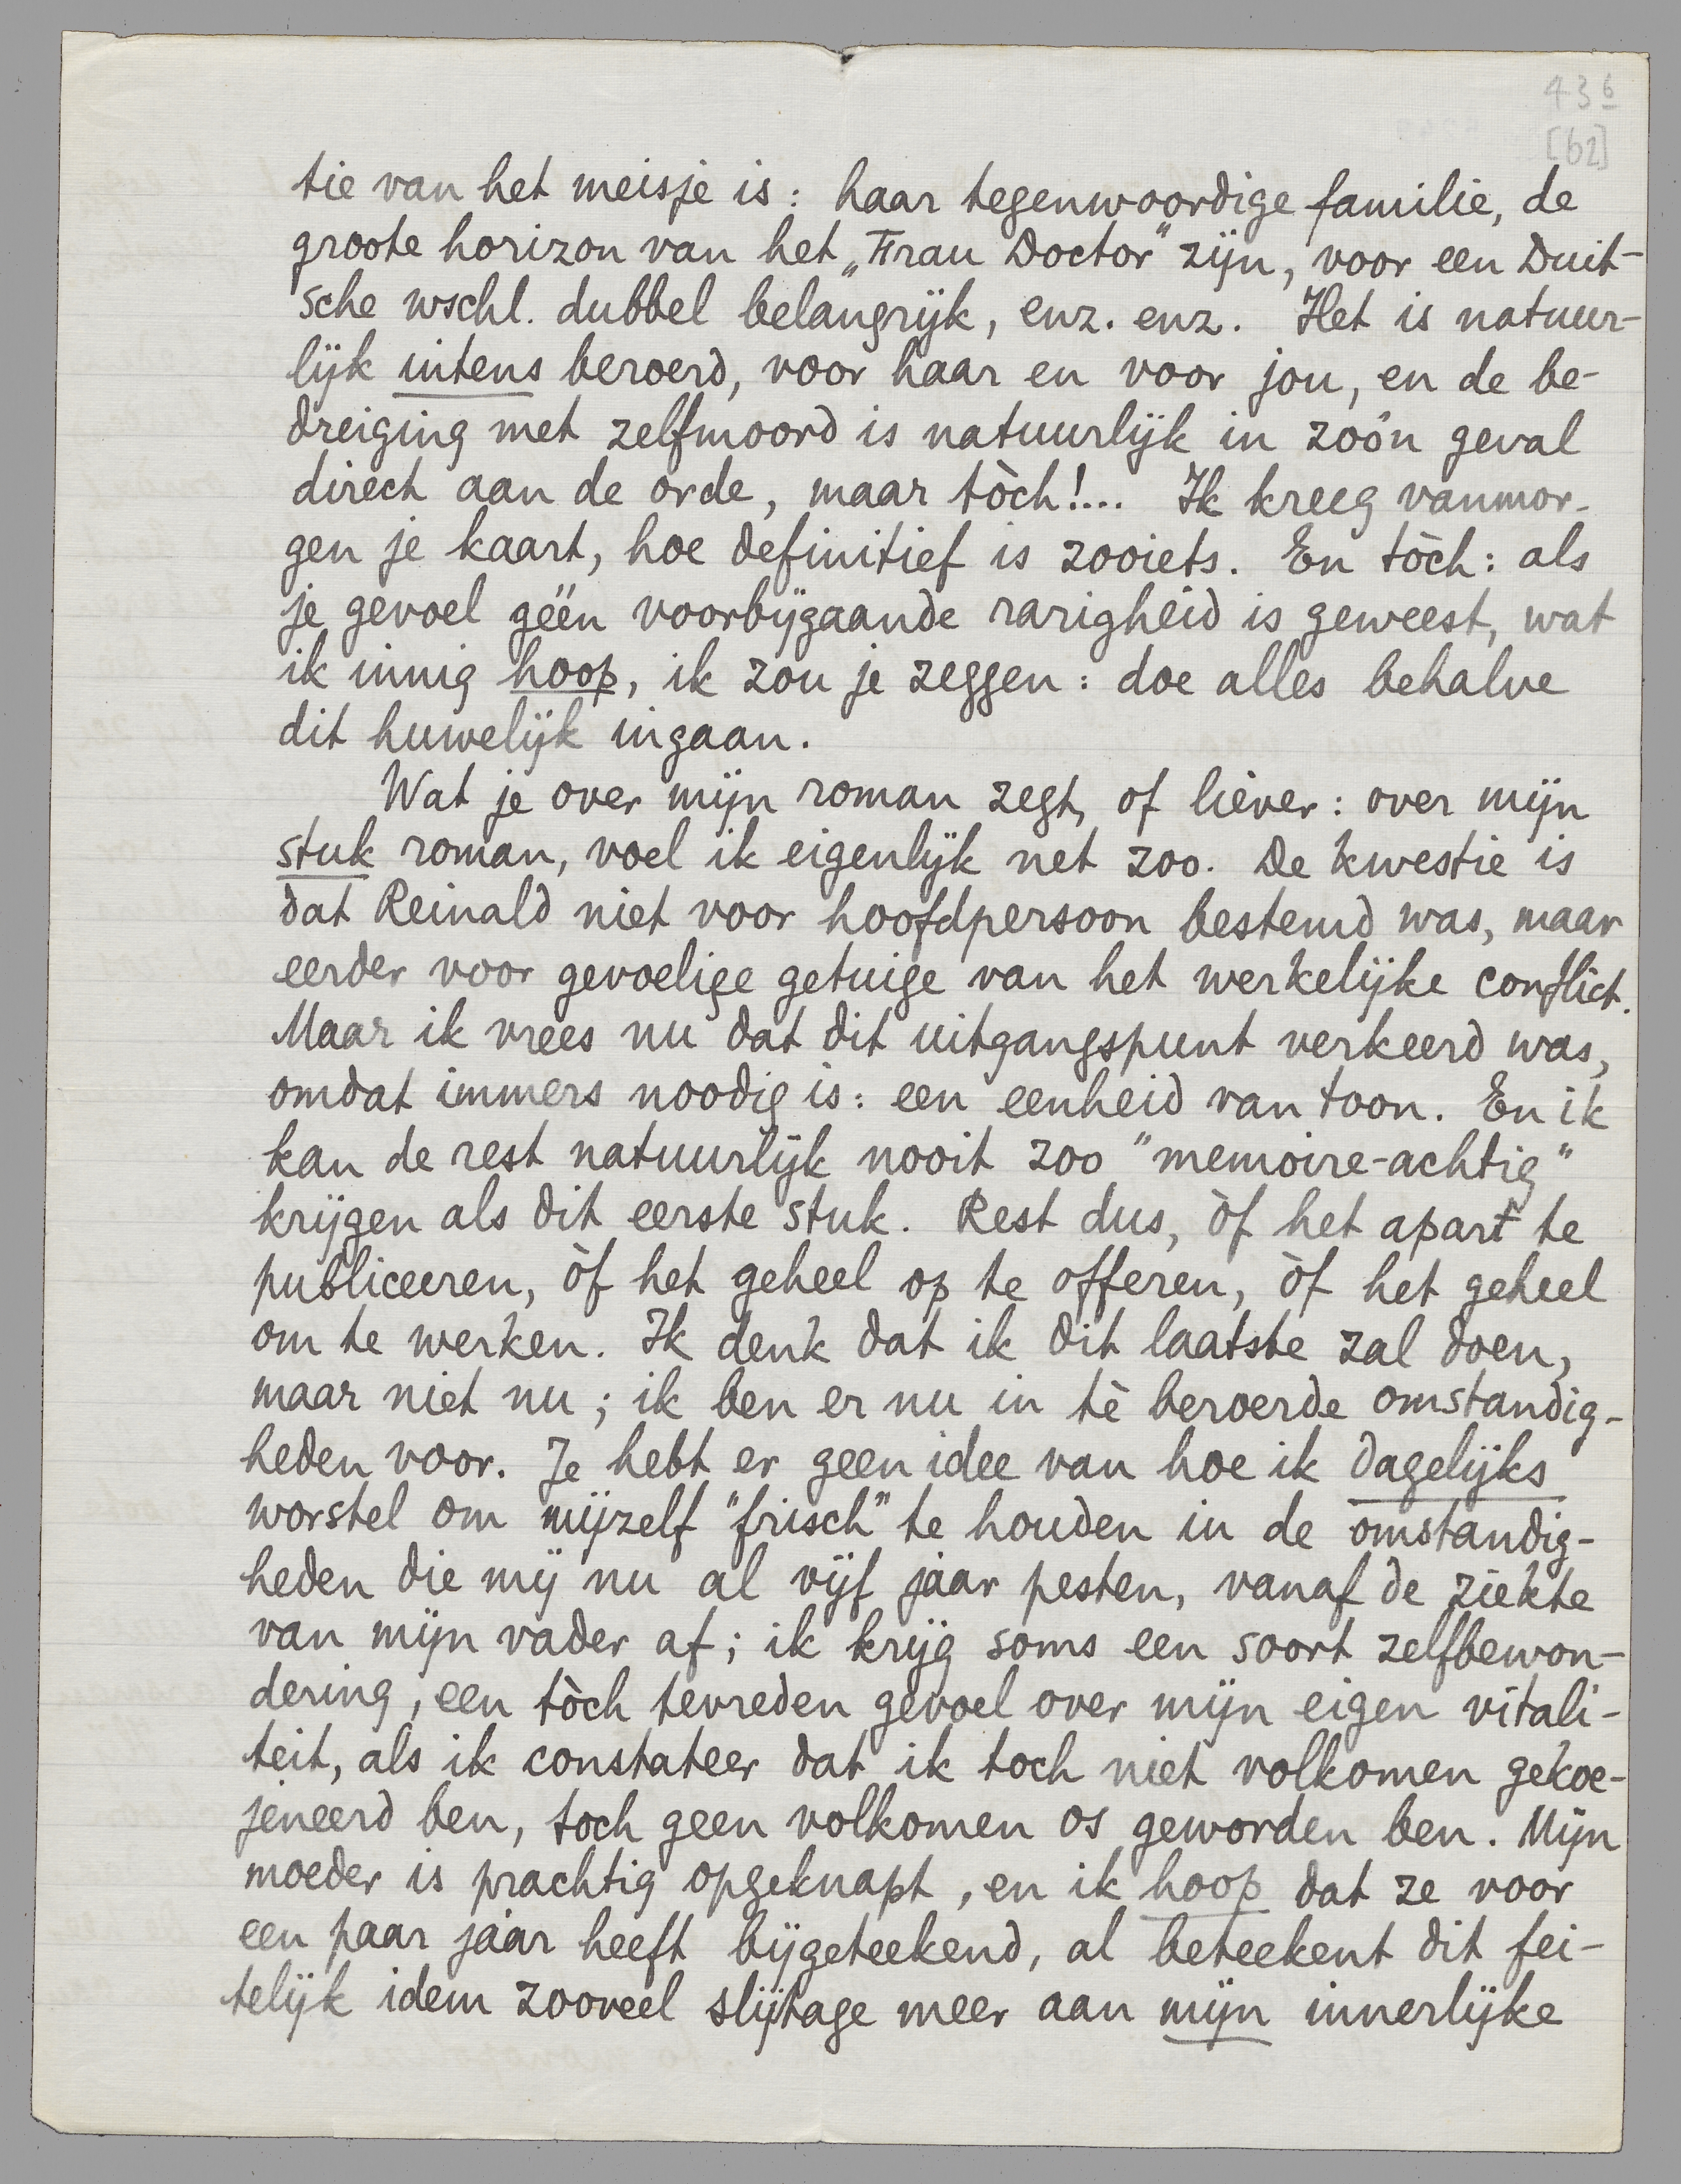 43 6
[62]
tie van het meisje is: haar tegenwoordige familie, de
groote horizon van het „Frau Doctor” zijn, voor een Duit-
sche wschl. dubbel belangrijk, enz. enz. Het is natuur-
lijk intens beroerd, voor haar en voor jou, en de be-
dreiging met zelfmoord is natuurlijk in zoo'n geval
direct aan de orde, maar tòch!... Ik kreeg vanmor-
gen je kaart, hoe definitief is zooiets. En tòch: als
je gevoel géén voorbijgaande rarigheid is geweest, wat
ik innig hoop, ik zou je zeggen: doe alles behalve
dit huwelijk ingaan.
Wat je over mijn roman zegt, of liever: over mijn
stuk roman, voel ik eigenlijk net zoo. De kwestie is
dat Reinald niet voor hoofdpersoon bestemd was, maar
eerder voor gevoelige getuige van het werkelijke conflict.
Maar ik vrees nu dat dit uitgangspunt verkeerd was,
omdat immers noodig is: een eenheid van toon. En ik
kan de rest natuurlijk nooit zoo "memoire-achtig"
krijgen als dit eerste stuk. Rest dus, òf het apart te
publiceeren, òf het geheel op te offeren, òf het geheel
om te werken. Ik denk dat ik dit laatste zal doen,
maar niet nu; ik ben er nu in tè beroerde omstandig-
heden voor. Je hebt er geen idee van hoe ik dagelijks
worstel om mijzelf "frisch" te houden in de omstandig-
heden die mij nu al vijf jaar pesten, vanaf de ziekte
van mijn vader af; ik krijg soms een soort zelfbewon-
dering, een tòch tevreden gevoel over mijn eigen vitali-
teit, als ik constateer dat ik toch niet volkomen gekoe-
jeneerd ben, toch geen volkomen os geworden ben. Mijn
moeder is prachtig opgeknapt, en ik hoop dat ze voor
een paar jaar heeft bijgeteekend, al beteekent dit fei-
telijk idem zooveel slijtage meer aan mijn innerlijke